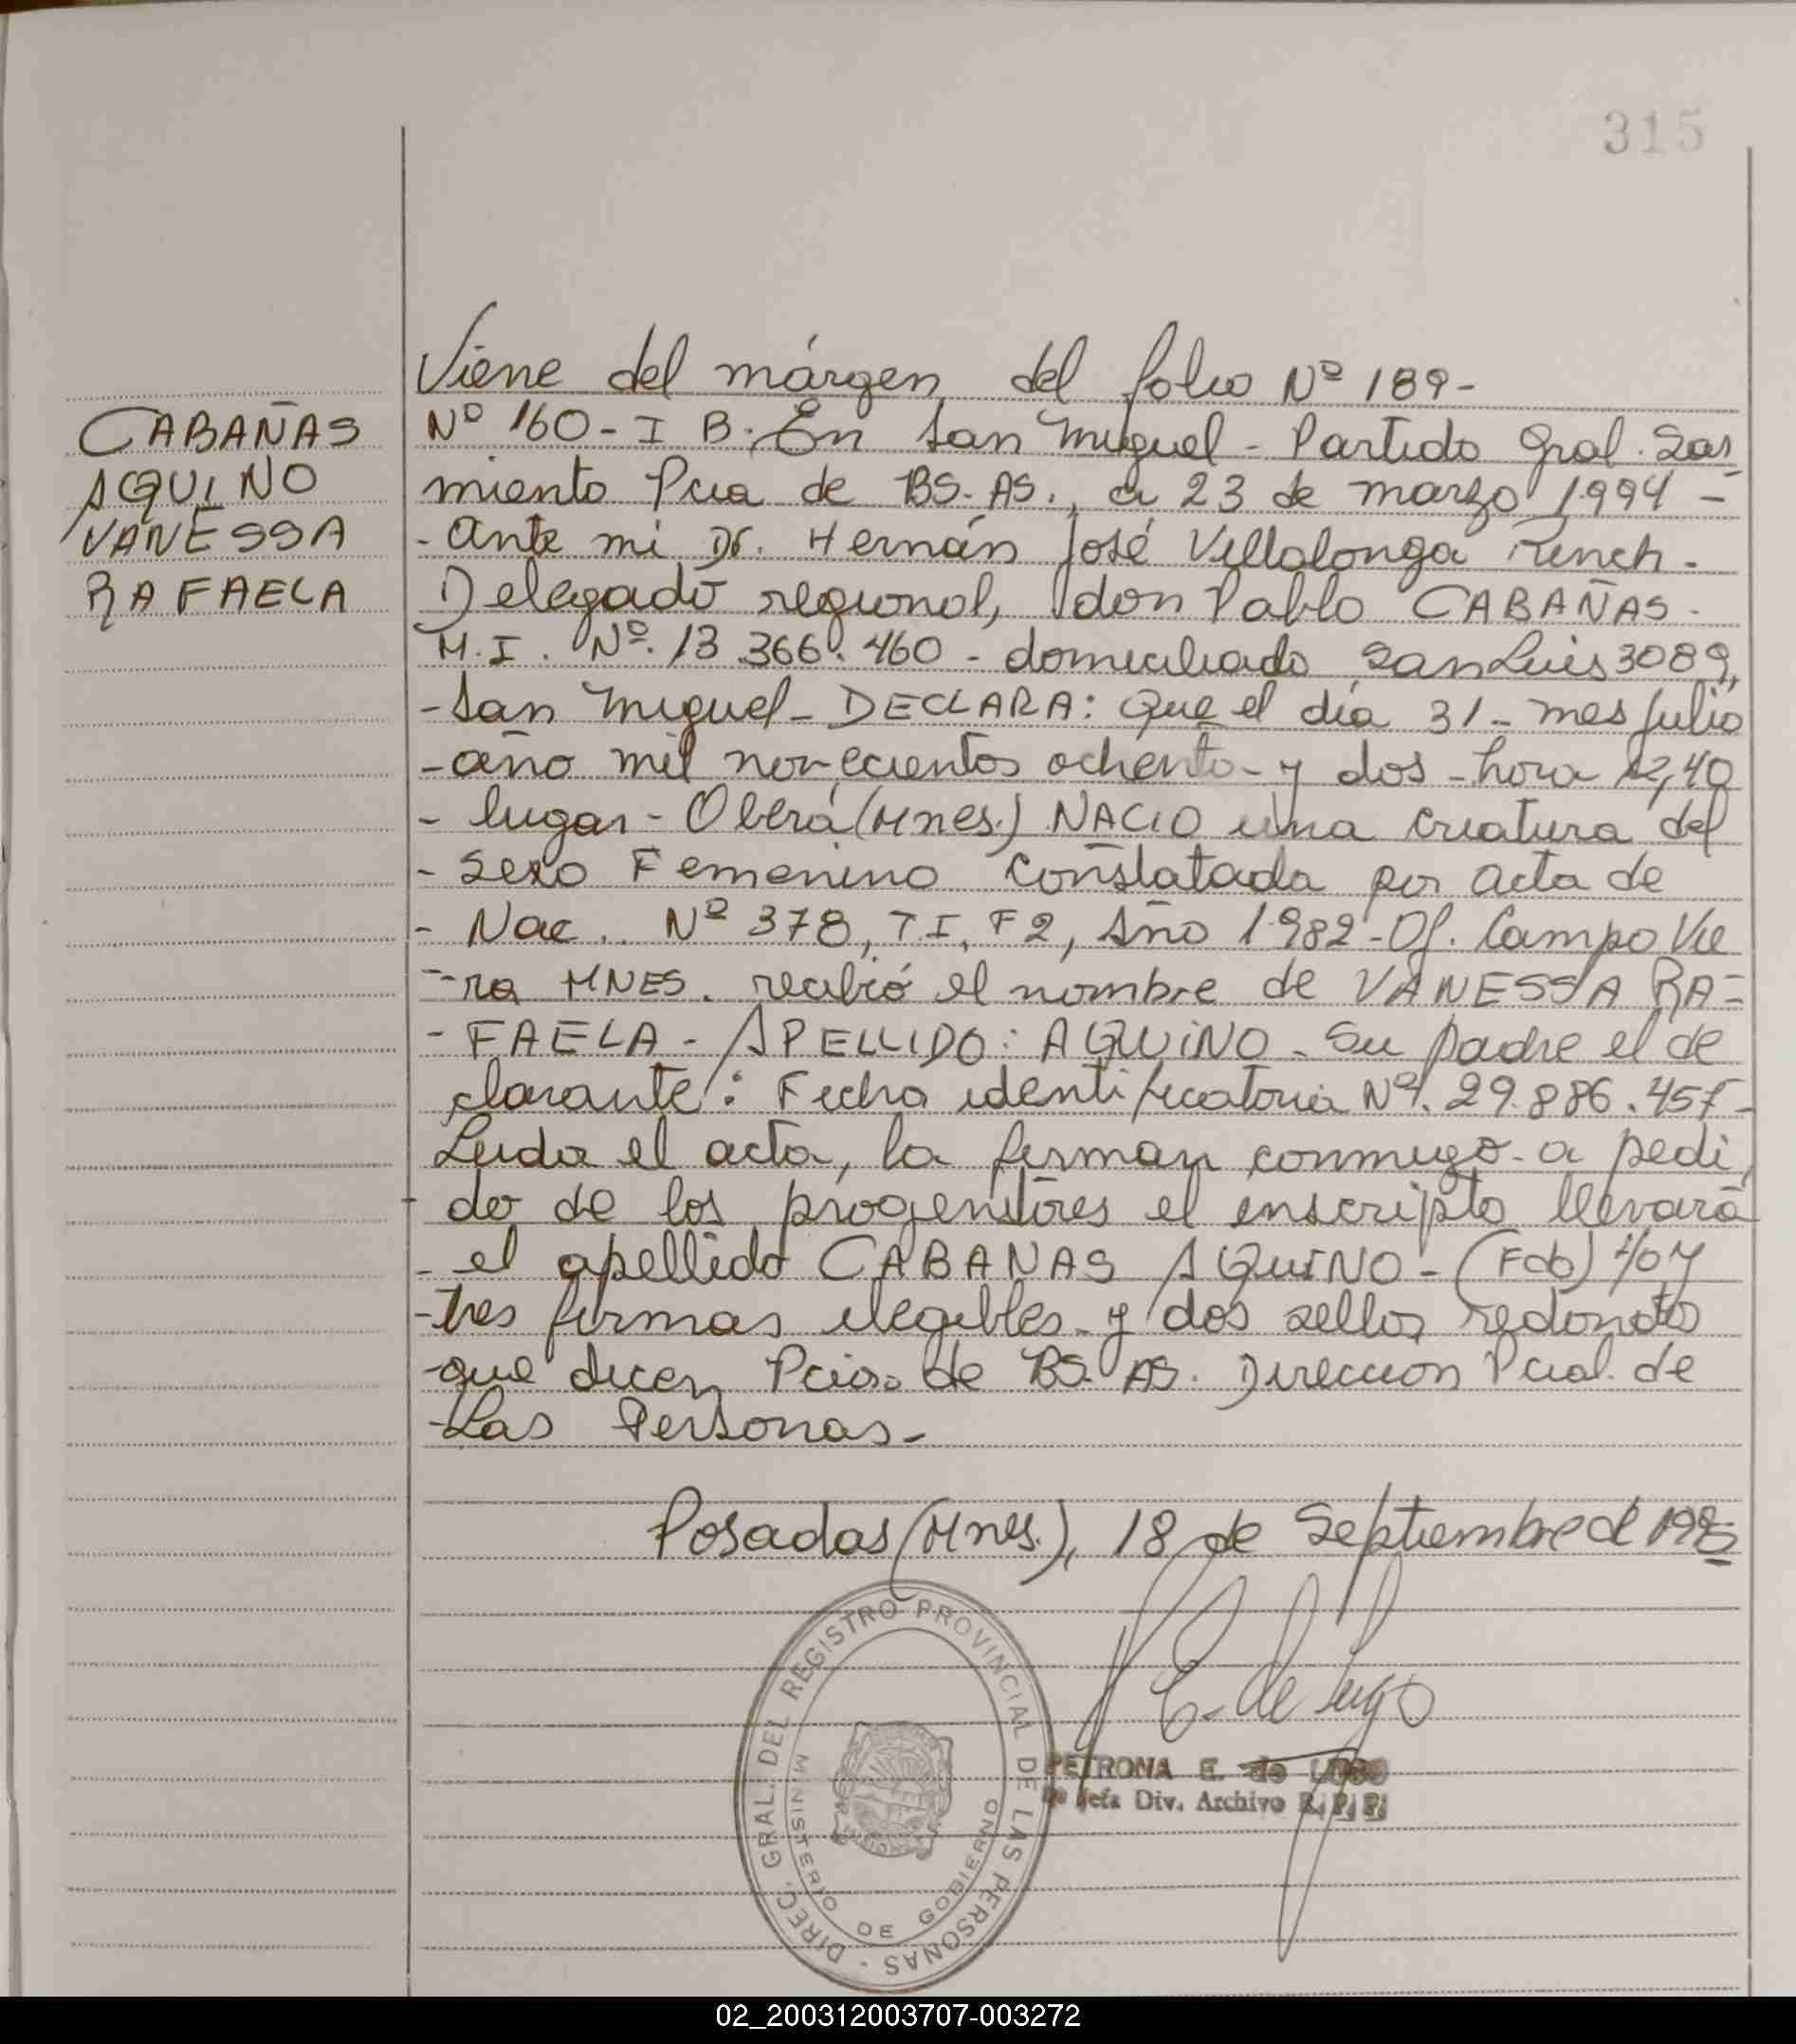 315
Viene del márgen del folio Nº 189-
CABAÑAS
AQUINO
VANESSA
RAFAELA
Nº 160 - I B. En San Miguel - Partido Gral. Sar
miento Pcia de BS. AS., a 23 de marzo 1994 -
- Ante mi Dr. Hernán José Villalonga
Delegado regional, don Pablo CABAÑAS -
M. I. Nº. 13.366.460 - domiciliado San Luis 3089,
- San Miguel - DECLARA: Que el día 31 - mes Julio
- año mil novecientos ochenta - y dos - hora 12,40
- lugar - Oberá (Mnes.) NACIO una criatura del
- sexo Femenino constatada por acta de
- Nac.. Nº 378, T. I, F 2, Año 1982 - Of. Campo Vie
- ra MNES. recibió el nombre de VANESSA RA=
- FAELA - APELLIDO: AQUINO - Su padre el de
clarante: Fecha identificatoria Nº. 29.886.457 -
Leida el acta, la firman conmigo - a pedi
do de los progenitores el inscripto llevará
- el apellido CABAÑAS AQUINO - (Fdo)
- tres firmas ilegibles - y dos sellos redondos
- que dicen Pcia. de BS. AS. Direccion Pcial. de
- Las Personas -
Posadas (Mnes.), 18 de Septiembre d 1995
DIREC. GRAL. DEL REGISTRO PROVINCIAL DE LAS PERSONAS -
MINISTERIO DE GOBIERNO
de Lugo
PETRONA E. de LUGO
Jefa Div. Archivo R. P. P.
02_200312003707-003272